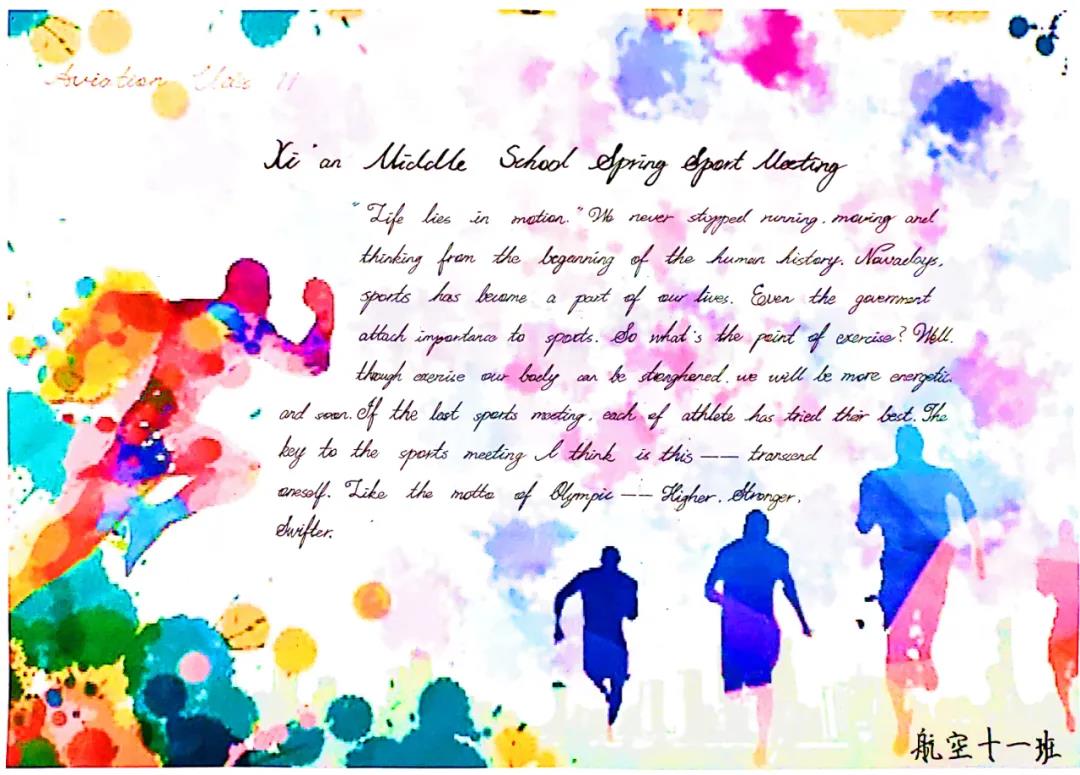 Aviation Class 11
Xi'an Middle School Spring Sport Meeting
"Life lies in motion." We never stopped running, moving and
thinking from the beganning of the human history. Nowadays,
sports has become a part of our lives. Even the government
attach importance to sports. So what's the point of exercise? Well.
though exercise our body can be strenghened, we will be more energetic,
and soon. If the last sports meeting, each of athlete has tried their best. The
key to the sports meeting I think is this —— transcend
oneself. Like the motto of Olympic —— Higher, Stronger,
Swifter.
航空十一班